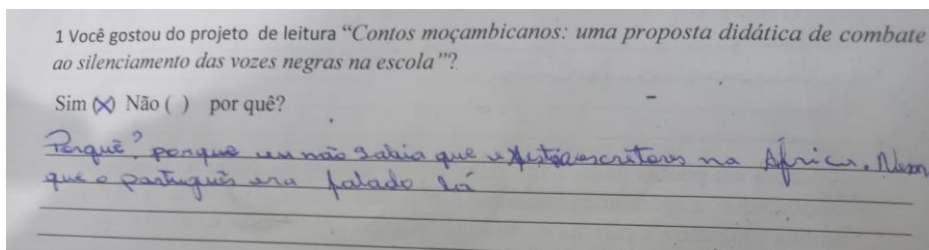 1 Você gostou do projeto de leitura “Contos moçambicanos: uma proposta didática de combate
ao silenciamento das vozes negras na escola”?
Sim (X) Não ( ) por quê?
Porquê? porque eu não sabia que existia escritores na África. Nem
que o português era falado lá